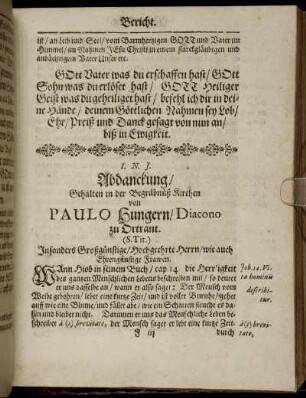 Bericht.
ist/ an Leib und Seel/ vom Barmhertzigen GOTT und Vater im
Himmel/ im Nahmen JEsu Christi in einem starckgläubigen und
andächtigen Vater Unser etc.
GOtt Vater was du erschaffen hast/ GOtt
Sohn was du erlöset hast/ GOTT Heiliger
Geist was du geheiliget hast/ befehl ich dir in dei-
ne Hände/ deinem Göttlichen Nahmen sey Lob/
Ehr/ Preiß und Danck gesagt von nun an/
biß in Ewigkeit.
I. N. J.
Abdanckung/
Gehalten in der Begräbniß Kirchen
von
PAULO Hungern/ Diacono
zu Ortrant.
(S. Tit.)
Insonders Großgünstige/ Hochgeehrte Herrn/ wie auch
Ehrengünstige Frawen.
WAnn Hiob in seinem Buch/ cap 14. die Herrligkeit
des gantzen Menschlichen Lebens beschreiben wil/ so deutet
er uns dasselbe an/ wann er also saget: Der Mensch vom
Weibe gebohren/ lebet eine kurtze Zeit/ und ist voller Unruhe/ gehet
auff wie eine Blume/ und fället abe/ wie ein Schatten fleucht er da-
hin und bleibet nicht. Dannnen er uns das Menschliche Leben be-
schreibet à (1) brevitate, der Mensch saget er lebt eine kurtze Zeit-
Job. 14. Vi-
ta hominis
describi-
tur.
à (1) brevi-
tate,
g iij
durch